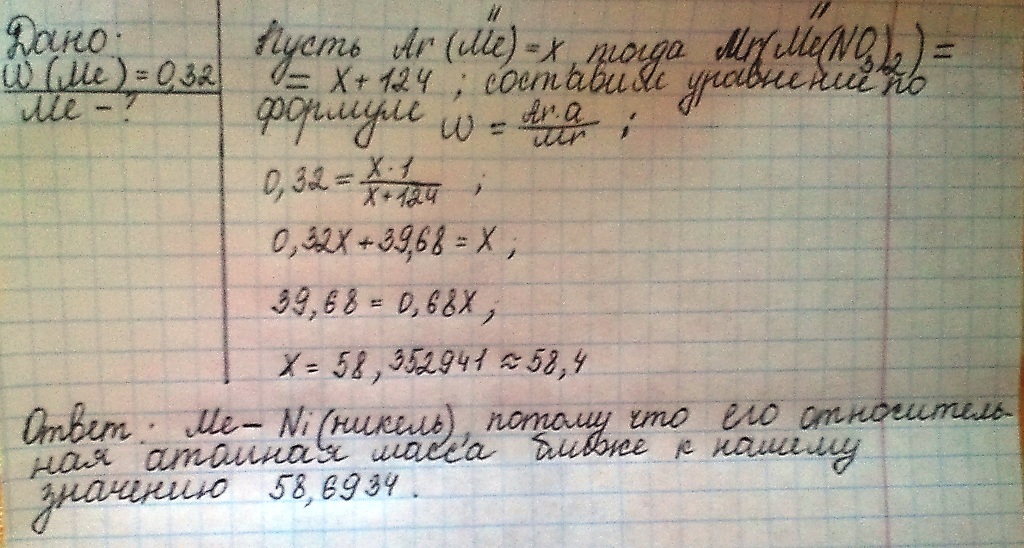 Дано:
W(Me)=0,32
Me-?
Пусть Ar(Me)=x, тогда Mr(Me(NO3)2)=
= x+124 ; составим уравнение по
формуле W = Ar·a/Mr ;
0,32 = x·1/x+124 ;
0,32x+39,68=x ;
39,68 = 0,68x ;
x = 58,352941 ≈ 58,4
Ответ: Me – Ni (никель), потому что его относитель-
ная атомная масса ближе к нашему
значению 58,6934.